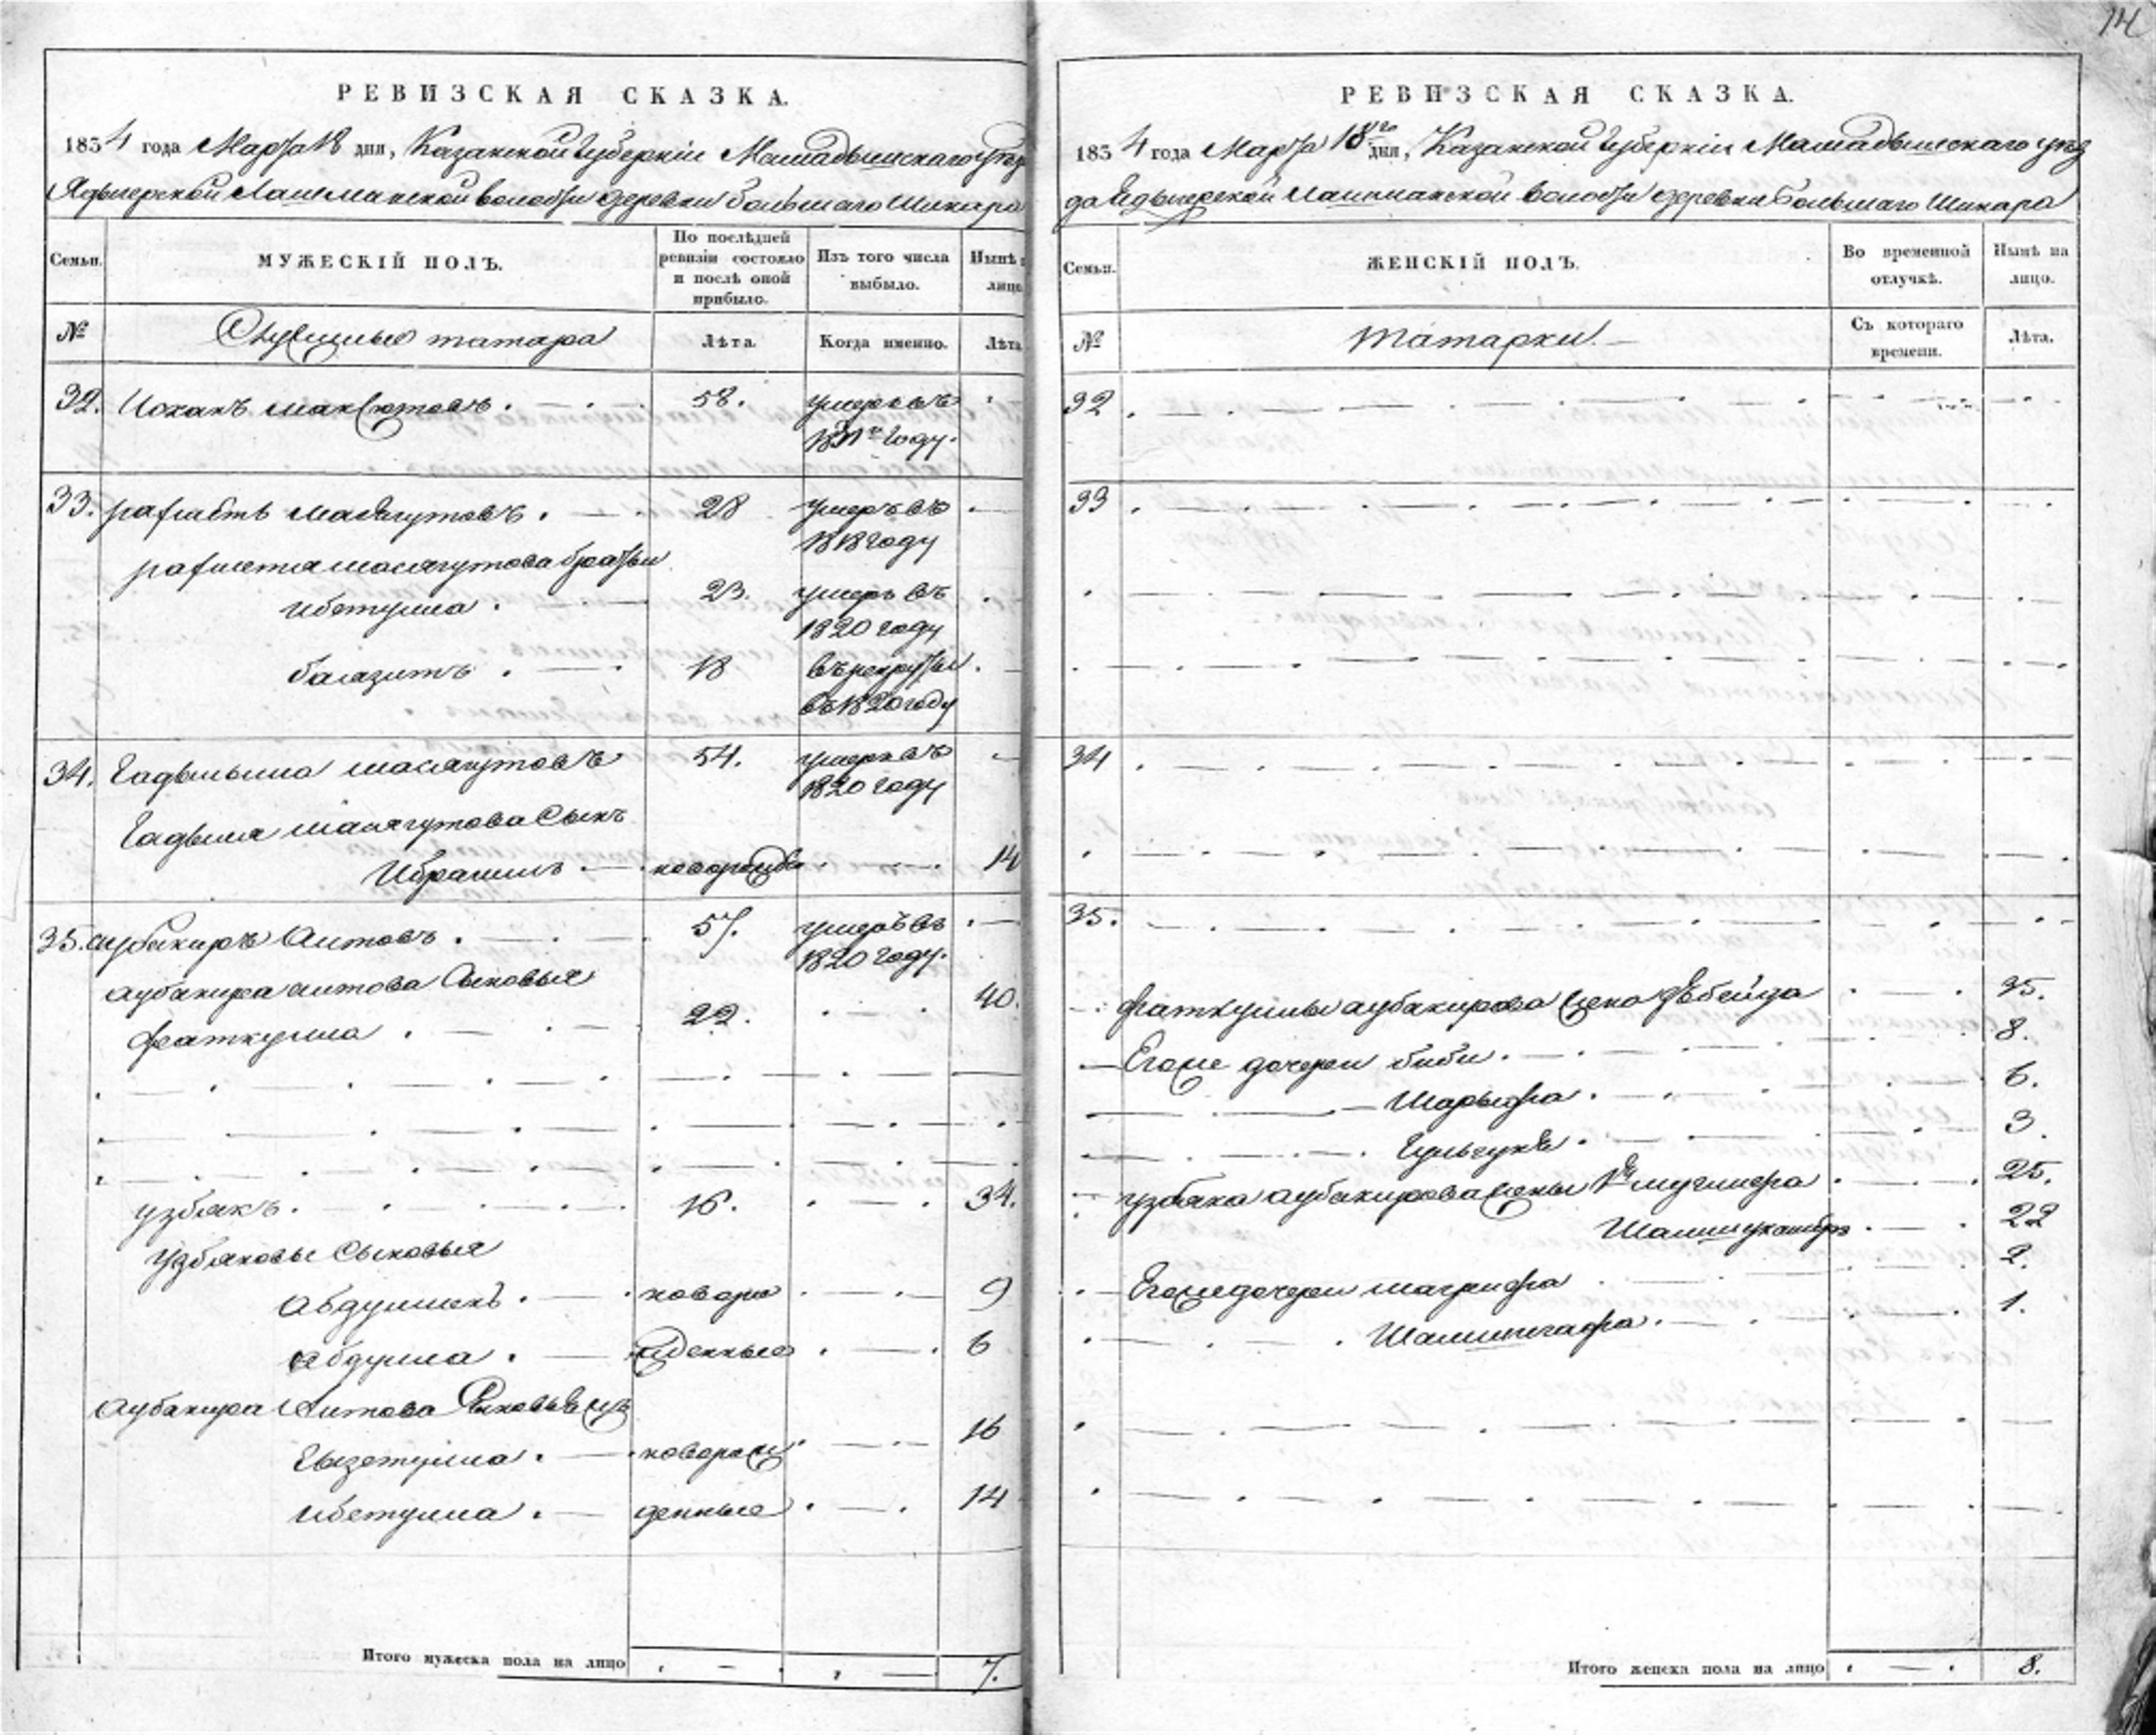 14
РЕВИЗСКАЯ СКАЗКА.
1834 года Марта 18 дня, Казанской Губерніи Мамадышскаго уез
Лашманской волости деревни большаго Шинара
Семьи. МУЖЕСКІЙ ПОЛЪ. По послѣдней ревизіи состояло и послѣ оной прибыло. Изъ того числа выбыло. Нынѣ лицо
№ Служилые татара Лѣта. Когда именно. Лѣта
32. Исхакъ Максютовъ 58. умеръ въ
году.
33. масягутовъ 28 умеръ въ
1818 году
масягутова братья
ибетулла 23. умеръ въ
1820 году
баязитъ 18 въ рекруты
въ 1820 году
34. масягутовъ 54. умеръ въ
1820 году
масягутова Сынъ
Ибрагимъ новорожде 14
35. аубакиръ Аитовъ 57. умеръ въ
1820 году.
аубакира аитова Сыновья
фаткулла 22. 40.
узбякъ 16. 34.
узбяковы Сыновья
новоро 9
абдулла жденные 6
аубакира Аитова Сыновья жъ
новорож 16
ибетулла денные 14
Итого мужеска пола на лицо 7.
РЕВИЗСКАЯ СКАЗКА.
1834 года Марта 18го дня, Казанской Губерніи Мамадышскаго уез
да Лашманской волости деревни большаго Шинара
Семьи. ЖЕНСКІЙ ПОЛЪ. Во временной отлучкѣ. Нынѣ на лицо.
№ татарки Съ котораго времени. Лѣта.
32
33
34
35.
фаткуллы аубакирова жена 35.
Егоже дочери биби 8.
Шарыфа 6.
3.
узбяка аубакирова жены 1я 25.
22
Егоже дочери 2.
1.
Итого женска пола на лицо 8.